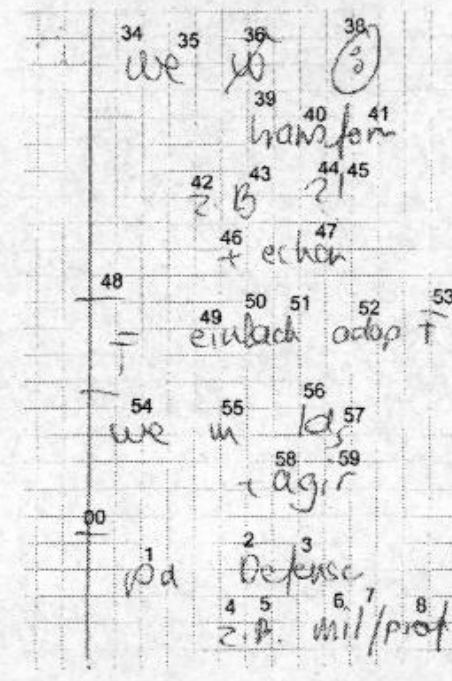 34 35 36 38
we
39 40 41
transform
42 43 44 45
z. B 21
46 47
+ echan
48
49 50 51 52 53
= einfach adap T
54 55 56 57
we in lds
58 59
+ agir
00
1 2 3
pd Defense
4 5 6 7 8
z.B. mil/prof